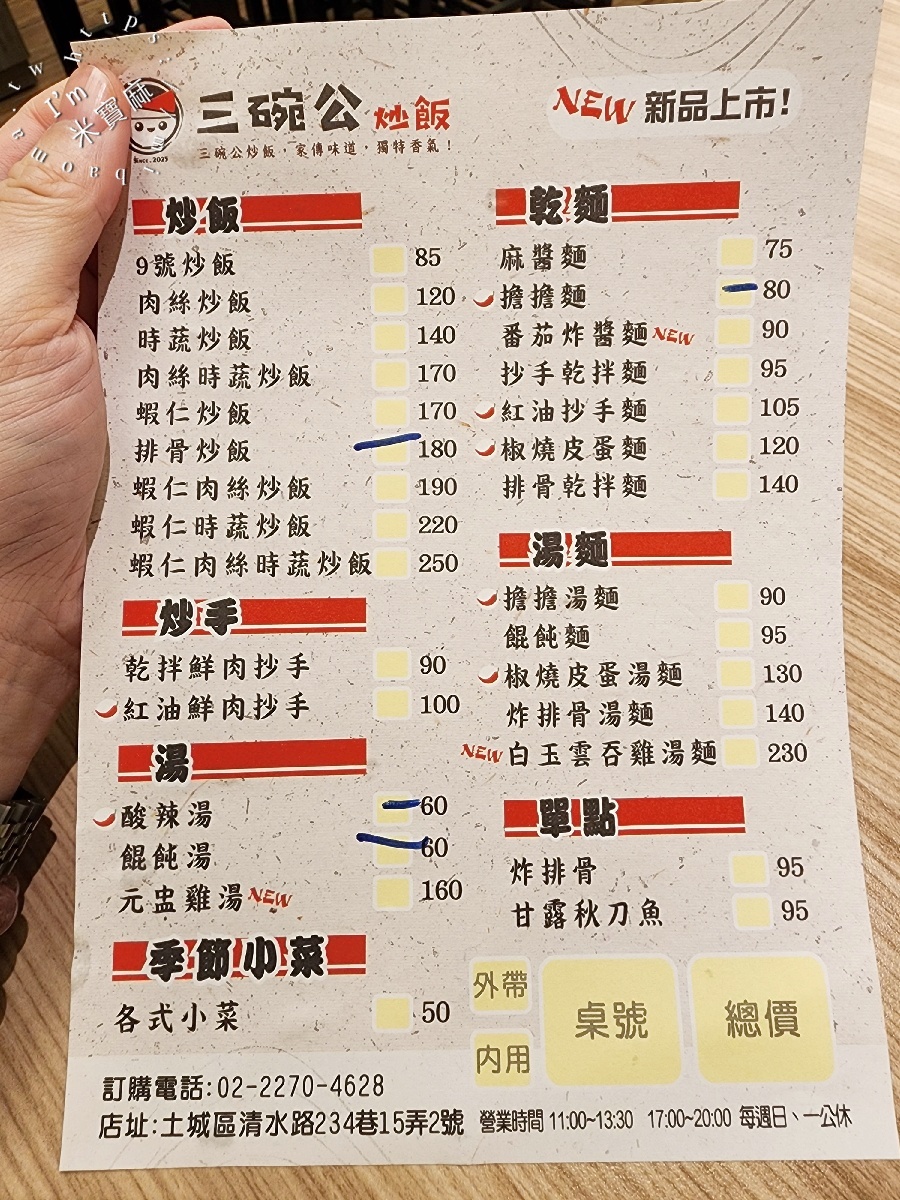 I'm
米寶麻
SINCE.2025
三碗公炒飯
三碗公炒飯，家傳味道，獨特香氣！
NEW 新品上市!
炒飯
9號炒飯 85
肉絲炒飯 120
時蔬炒飯 140
肉絲時蔬炒飯 170
蝦仁炒飯 170
排骨炒飯 180
蝦仁肉絲炒飯 190
蝦仁時蔬炒飯 220
蝦仁肉絲時蔬炒飯 250
炒手
乾拌鮮肉抄手 90
紅油鮮肉抄手 100
湯
酸辣湯 60
餛飩湯 60
元盅雞湯 NEW 160
季節小菜
各式小菜 50
乾麵
麻醬麵 75
擔擔麵 80
番茄炸醬麵 NEW 90
抄手乾拌麵 95
紅油抄手麵 105
椒燒皮蛋麵 120
排骨乾拌麵 140
湯麵
擔擔湯麵 90
餛飩麵 95
椒燒皮蛋湯麵 130
炸排骨湯麵 140
NEW 白玉雲吞雞湯麵 230
單點
炸排骨 95
甘露秋刀魚 95
外帶
內用
桌號
總價
訂購電話:02-2270-4628
店址:土城區清水路234巷15弄2號
營業時間 11:00~13:30 17:00~20:00 每週日、一公休